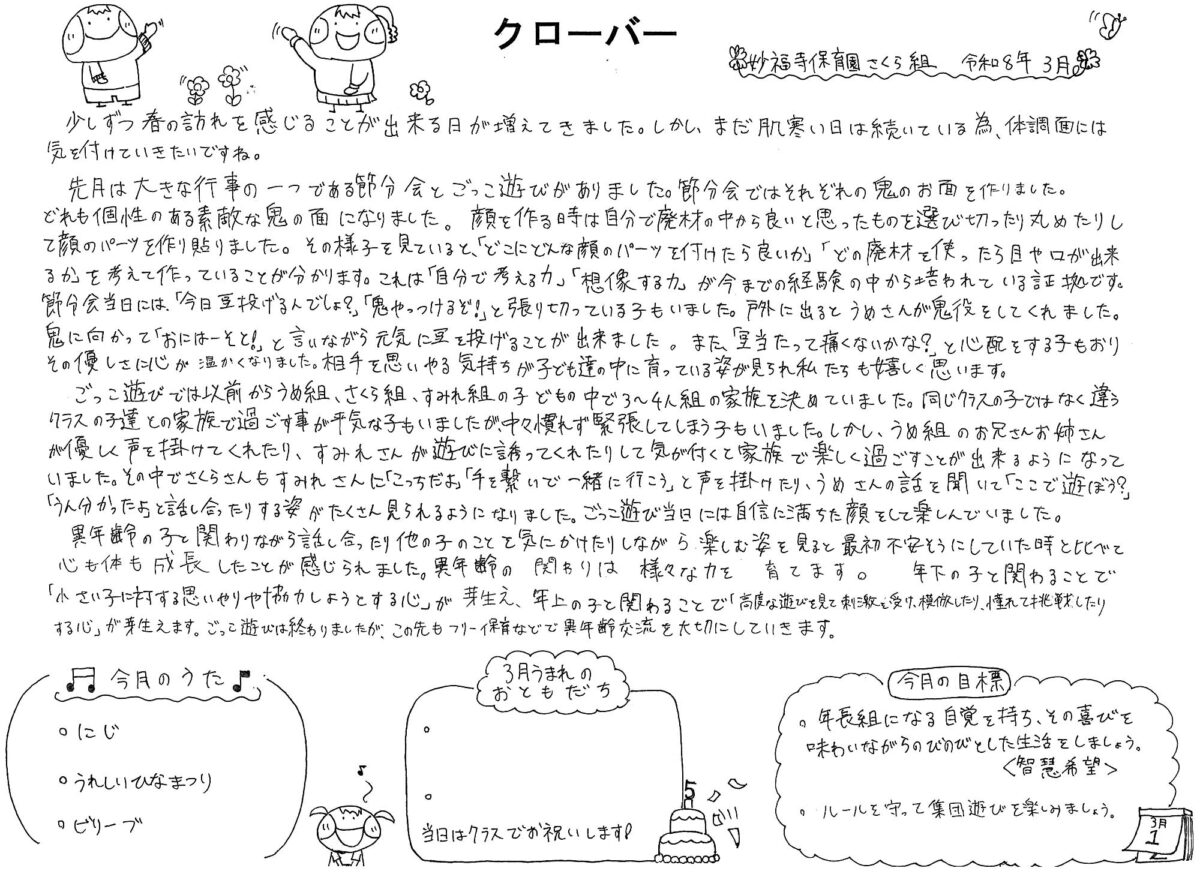 クローバー
妙福寺保育園 さくら組 令和8年 3月
少しずつ春の訪れを感じることが出来る日が増えてきました。しかし、まだ肌寒い日は続いている為、体調面には
気を付けていきたいですね。
先月は大きな行事の一つである節分会とごっこ遊びがありました。節分会ではそれぞれの鬼のお面を作りました。
どれも個性のある素敵な鬼の面になりました。顔を作る時は自分で廃材の中から良いと思ったものを選び切ったり丸めたりし
て顔のパーツを作り貼りました。その様子を見ていると、「どこにどんな顔のパーツを付けたら良いか」「どの廃材を使ったら目や口が出来
るか」を考えて作っていることが分かります。これは「自分で考える力」「想像する力」が今までの経験の中から培われている証拠です。
節分会当日には、「今日豆投げるんでしょ?」「鬼やっつけるぞ!」と張り切っている子もいました。戸外に出るとうめさんが鬼役をしてくれました。
鬼に向かって「おにはーそと!」と言いながら元気に豆を投げることが出来ました。また、「豆当たって痛くないかな?」と心配をする子もおり
その優しさに心が温かくなりました。相手を思いやる気持ちが子ども達の中に育っている姿が見られ私たちも嬉しく思います。
ごっこ遊びでは以前からうめ組、さくら組、すみれ組の子どもの中で3〜4人組の家族を決めていました。同じクラスの子ではなく違う
クラスの子達との家族で過ごす事が平気な子もいましたが、中々慣れず緊張してしまう子もいました。しかし、うめ組のお兄さんお姉さん
が優しく声を掛けてくれたり、すみれさんが遊びに誘ってくれたりして気が付くと家族で楽しく過ごすことが出来るようになって
いました。その中でさくらさんもすみれさんに「こっちだよ」「手を繋いで一緒に行こう」と声を掛けたり、うめさんの話を聞いて「ここで遊ぼう?」
「うん分かったよ」と話し合ったりする姿がたくさん見られるようになりました。ごっこ遊び当日には自信に満ちた顔をして楽しんでいました。
異年齢の子と関わりながら話し合ったり他の子のことを気にかけたりしながら楽しむ姿を見ると最初不安そうにしていた時と比べて
心も体も成長したことが感じられました。異年齢の関わりは様々な力を育てます。年下の子と関わることで
「小さい子に対する思いやりや協力しようとする心」が芽生え、年上の子と関わることで「高度な遊びを見て刺激を受け、模倣したり、憧れて挑戦したり
する心」が芽生えます。ごっこ遊びは終わりましたが、この先もフリー保育などで異年齢交流を大切にしていきます。
今月のうた
。にじ
。うれしいひなまつり
。ビリーブ
3月うまれの
おともだち
当日はクラスでお祝いします!
5
今月の目標
。年長組になる自覚を持ち、その喜びを
味わいながらのびのびとした生活をしましょう。
<智慧希望>
。ルールを守って集団遊びを楽しみましょう。
3月
1